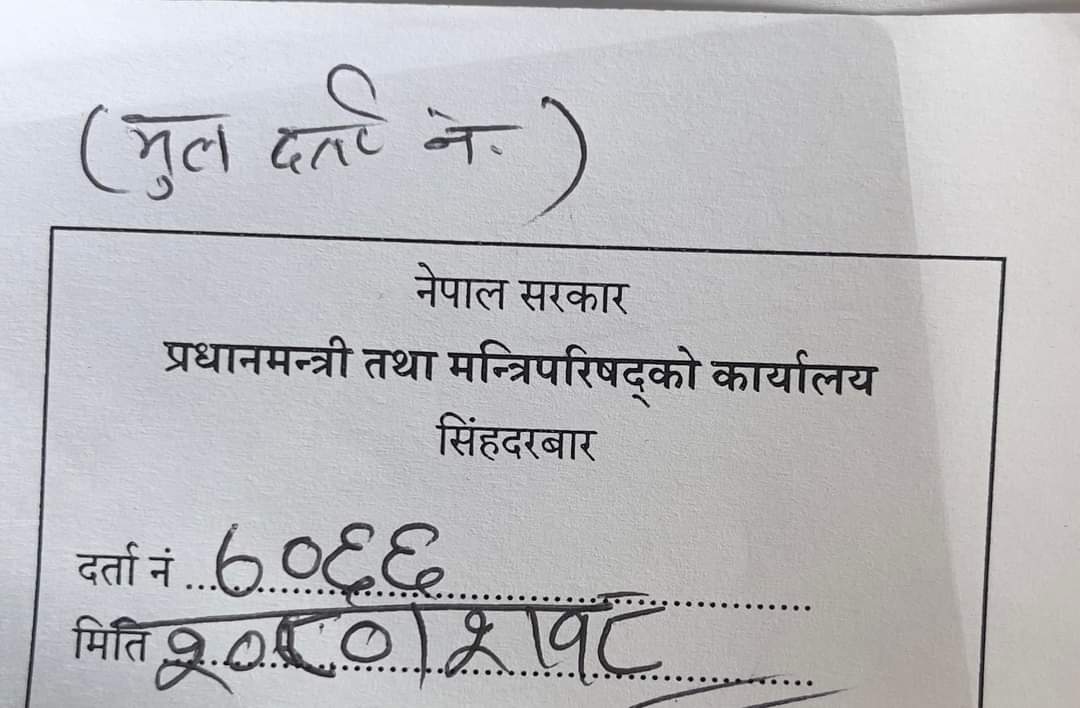 (मुल दर्ता नं.)
नेपाल सरकार
प्रधानमन्त्री तथा मन्त्रिपरिषद्को कार्यालय
सिंहदरबार
दर्ता नं ...७०६६
मिति २०८०।२।१८